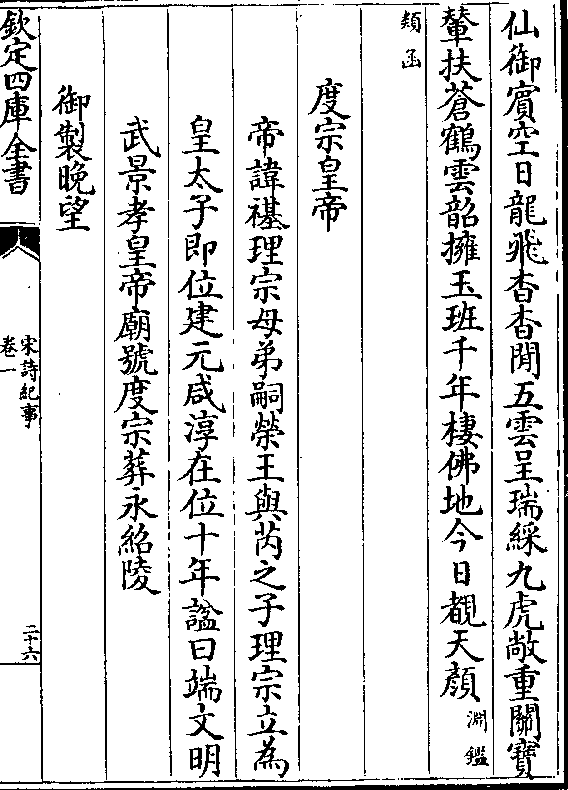 仙御賓空日龍飛杳杳閒五雲呈瑞綵九虎敞重關寶
輦扶蒼鶴雲韶擁玉班千年棲佛地今日覩天顔淵鑑
類函
度宗皇帝
帝諱禥理宗母弟嗣榮王與芮之子理宗立為
皇太子即位建元咸淳在位十年諡曰端文明
武景孝皇帝廟號度宗葬永紹陵
御製晚望
欽定四庫全書
宋詩紀事
卷一
二十六